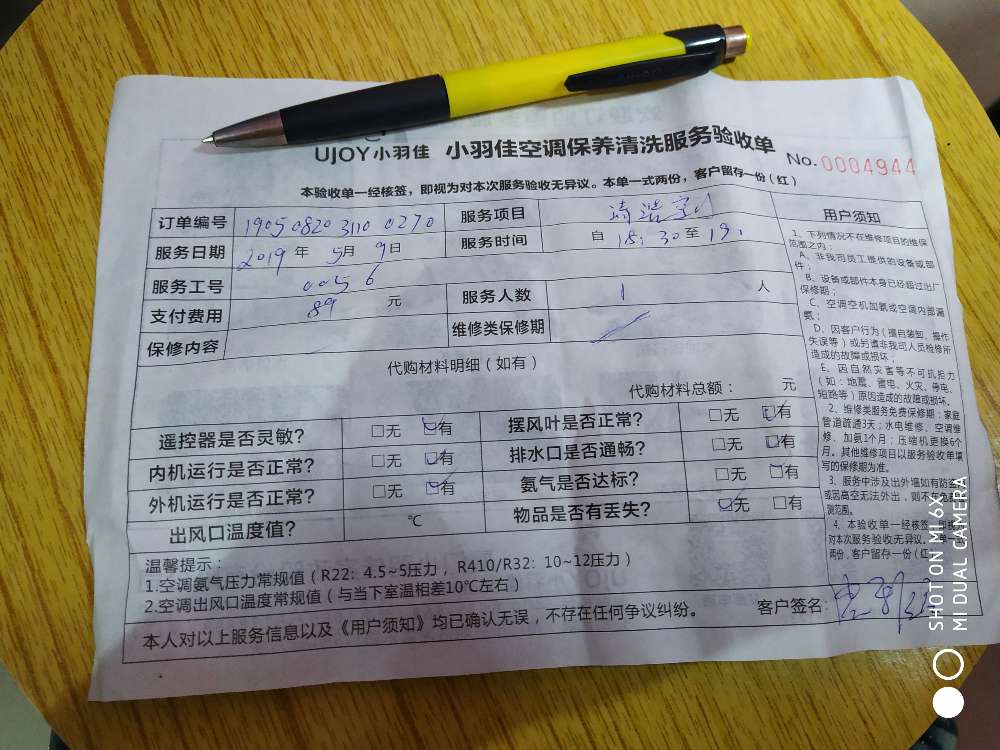 UJOY小羽佳 小羽佳空调保养清洗服务验收单
No.0004944
本验收单一经核签，即视为对本次服务验收无异议。本单一式两份，客户留存一份（红）
订单编号 1905 0820 3110 0270 服务项目
服务日期 2019 年 5月 9日 服务时间 自 18:30至19:
服务工号 0056
支付费用 89 元 服务人数 1 人
保修内容 维修类保修期
代购材料明细（如有）
代购材料总额： 元
遥控器是否灵敏? □无 □有 摆风叶是否正常? □无 □有
内机运行是否正常? □无 □有 排水口是否通畅? □无 □有
外机运行是否正常? □无 □有 氨气是否达标? □无 □有
出风口温度值? ℃ 物品是否有丢失? □无 □有
温馨提示：
1.空调氨气压力常规值（R22：4.5~5压力，R410/R32：10~12压力）
2.空调出风口温度常规值（与当下室温相差10℃左右）
本人对以上服务信息以及《用户须知》均已确认无误，不存在任何争议纠纷。 客户签名:
用户须知
1、下列情况不在维修项目的维保
范围之内：
A、非我司员工提供的设备或部
件；
B、设备或部件本身已经超过出厂
保修期；
C、空调空机加氨或空调内部漏
氨；
D、因客户行为（擅自装卸、操作
失误等）或另请非我司人员检修所
造成的故障或损坏；
E、因自然灾害等不可抗拒力
（如：地震、雷电、火灾、停电、
短路等）原因造成的故障或损坏。
2、维修类服务免费保修期：家庭
管道疏通3天；水电维修、空调维
修、加氨1个月；压缩机更换6个
月。其他维修项目以服务验收单填
写的保修期为准。
3、服务中涉及出外墙如有防盗
或因高空无法外出，则不在
测范围。
4、本验收单一经核签，即视为
对本次服务验收无异议。本单一式
两份，客户留存一份（红）
SHOT ON MI 6X
MI DUAL CAMERA